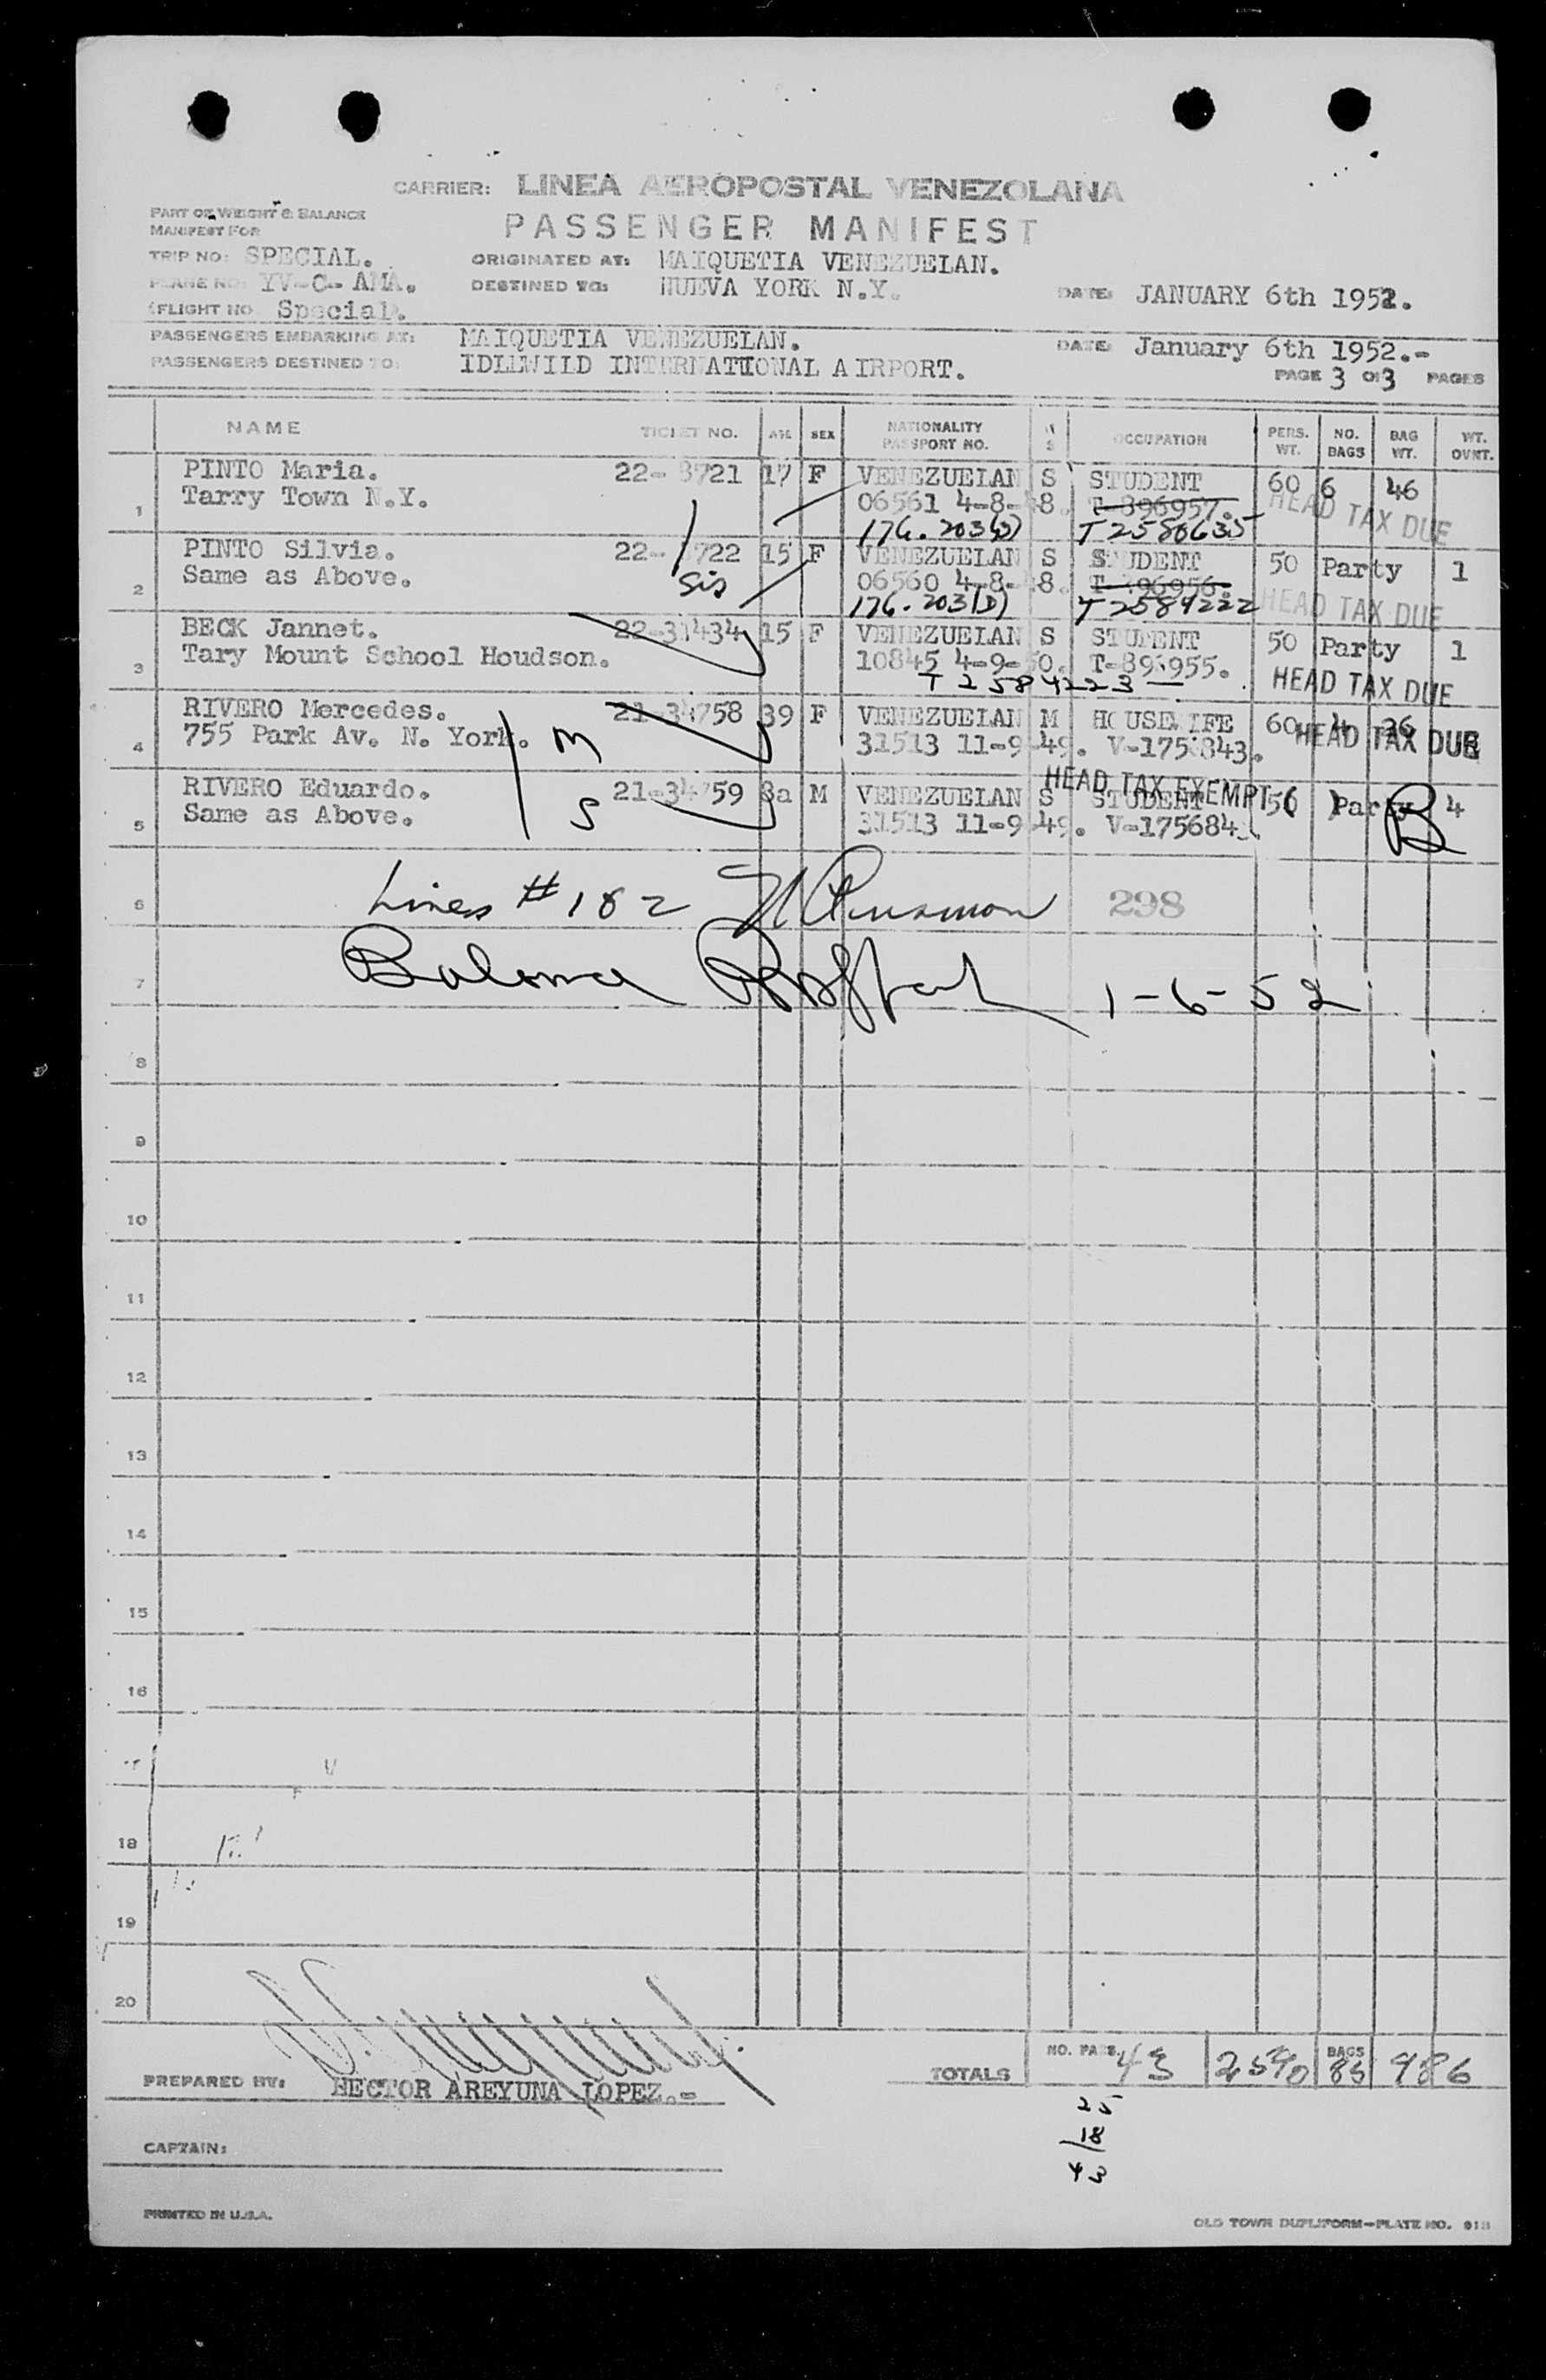 CARRIER: LINEA AEROPOSTAL VENEZOLANA
PART OF WEIGHT & BALANCE
MANIFEST FOR
PASSENGER MANIFEST
TRIP NO: SPECIAL. ORIGINATED AT: MAIQUETIA VENEZUELAN.
PLANE NO: YV-C-AMA. DESTINED TO: NUEVA YORK N.Y. DATE: JANUARY 6th 1952.
FLIGHT NO Special.
PASSENGERS EMBARKING AT: MAIQUETIA VENEZUELAN. DATE: January 6th 1952.-
PASSENGERS DESTINED TO: IDLEWILD INTERNATIONAL AIRPORT. PAGE 3 OF 3 PAGES
NAME TICKET NO. AGE SEX NATIONALITY PASSPORT NO. M S OCCUPATION PERS. WT. NO. BAGS BAG WT. WT. OVNT.
PINTO Maria. 22- 8721 17 F VENEZUELAN S STUDENT 60 6 46
Tarry Town N.Y. 06561 4-8-48. T-896957. HEAD TAX DUE
1 176.203(D) T2580635
PINTO Silvia. 22- 722 15 F VENEZUELAN S STUDENT 50 Party 1
Same as Above. sis 06560 4-8-48. T- 96956. HEAD TAX DUE
2 176.203(D) T2584222
BECK Jannet. 22-31434 15 F VENEZUELAN S STUDENT 50 Party 1
Tary Mount School Houdson. 10845 4-9-50. T-89 955. HEAD TAX DUE
3 T2584223
RIVERO Mercedes. 21-34758 39 F VENEZUELAN M HOUSEWIFE 60 4 36
755 Park Av. N. York. M 31513 11-9-49. V-175 843. HEAD TAX DUE
4 HEAD TAX EXEMPT
RIVERO Eduardo. 21-34759 8a M VENEZUELAN S STUDENT 56 Party 4
Same as Above. S 31513 11-9-49. V-175684 B
5
6 Lines #1&2 298
7 1-6-52
8
9
10
11
12
13
14
15
16
18
19
20
PREPARED BY: HECTOR AREYUNA LOPEZ.- TOTALS NO. PASS. 43 2590 BAGS 85 986
25
18
43
CAPTAIN:
PRINTED IN U.S.A. OLD TOWN DUPLIFORM-PLATE NO. 918